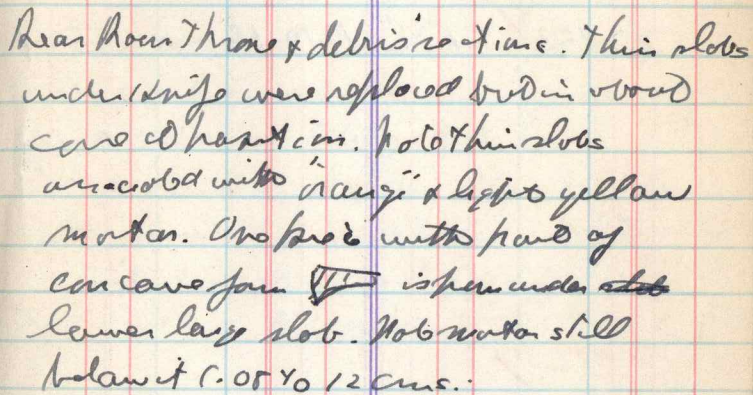 Rear Room Throne & debris'se time. Thin slabs
under knife were replaced but in about
position. Note thin slabs
with "orange" & light yellow
mortar. One piece with part of
concave form is from under
lower large slab. Note mortar still
below it (.08 to 12 cms.